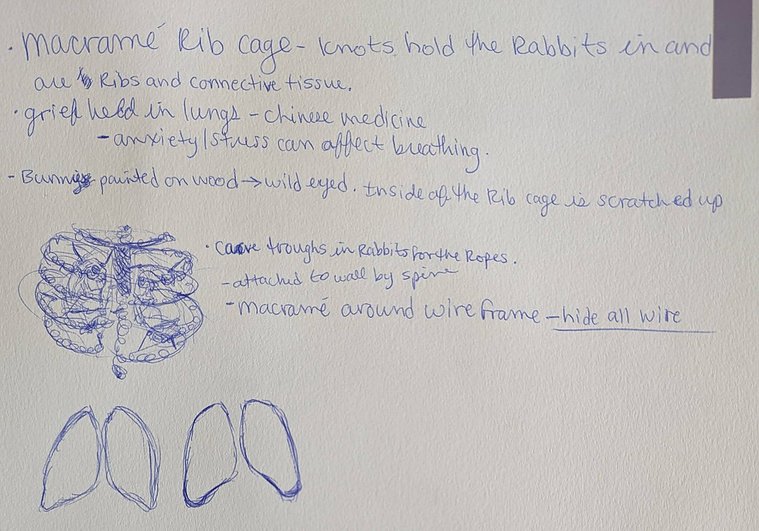 · Macramé Rib cage - knots hold the Rabbits in and
are Ribs and connective tissue.
· grief held in lungs - chinese medicine
- anxiety/stress can affect breathing.
- Bunnys painted on wood → wild eyed. Inside of the Rib cage is scratched up
· Carve troughs in Rabbits for the Ropes.
- attached to wall by spine
- macramé around wire frame - hide all wire